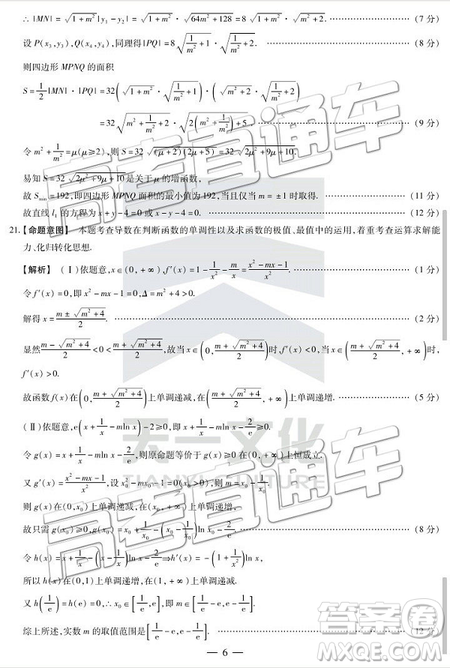 ∴ |MN| = √(1+m²)|y₁-y₂| = √(1+m²)·√(64m²+128) = 8√(1+m²)·√(m²+2). (7 分)
设 P(x₃,y₃),Q(x₄,y₄),同理得|PQ| = 8√(1/m²+1)·√(1/m²+2). (8 分)
则四边形 MPNQ 的面积
S = 1/2|MN|·|PQ| = 32(√(1+m²)·√(1/m²+1))·(√(m²+2)·√(1/m²+2))
= 32√(m²+1/m²+2)·√(2(m²+1/m²)+5). (9 分)
令 m²+1/m² = μ(μ≥2),则 S = 32√((μ+2)(2μ+5)) = 32√(2μ²+9μ+10).
易知 S = 32√(2μ²+9μ+10)是关于 μ 的增函数,
故 Sₘᵢₙ = 192,即四边形 MPNQ 面积的最小值为 192,当且仅当 m = ±1 时取得. (11 分)
故直线 l₁ 的方程为 x+y-2=0 或 x-y-2=0. (12 分)
21.【命题意图】 本题考查导数在判断函数的单调性以及求函数的极值、最值中的运用,着重考查运算求解能
力、化归转化思想.
【解析】 (Ⅰ)依题意,x∈(0,+∞),f′(x) = 1-1/x²-m/x = (x²-mx-1)/x². (1 分)
令 f′(x) = 0,即 x²-mx-1=0,Δ=m²+4>0.
解得 x = (m±√(m²+4))/2.
显然(m-√(m²+4))/2<0<(m+√(m²+4))/2,故当 x∈(0,(m+√(m²+4))/2)时,f′(x)<0,当 x∈((m+√(m²+4))/2,+∞)时,
f′(x)>0.
故函数 f(x)在(0,(m+√(m²+4))/2)上单调递减,在((m+√(m²+4))/2,+∞)上单调递增. (5 分)
(Ⅱ)依题意,e(x+1/x-mln x)-2≥0,即 x+1/x-mln x-2/e≥0,
令 g(x) = x+1/x-mln x-2/e,则原命题等价于 g(x)≥0 在(0,+∞)上恒成立.
又 g′(x) = (x²-mx-1)/x²,设 x₀²-mx₀-1=0(x₀>0),则 m = x₀-1/x₀,
则 g(x)在(0,x₀)上单调递减,在(x₀,+∞)上单调递增.
故只需 g(x₀) = x₀+1/x₀-(x₀-1/x₀)ln x₀-2/e≥0. (8 分)
令 h(x) = x+1/x-(x-1/x)ln x-2/e⇒h′(x) = -(1+1/x²)ln x,
所以 h(x)在(0,1)上单调递增,在(1,+∞)上单调递减.
又 h(1/e) = h(e) = 0,∴ x₀∈[1/e,e],即 m∈[1/e-e,e-1/e].
综上所述,实数 m 的取值范围是[1/e-e,e-1/e]. (12 分)
— 6 —
高考直通车
天一文化
TIANYI CULTURE
高考直通车
答案圈